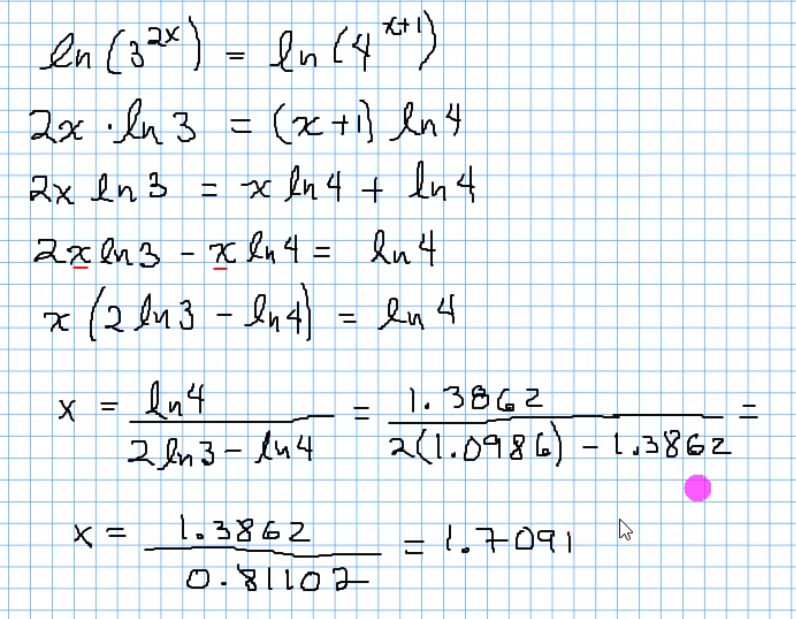 ln(3^{2x}) = ln(4^{x+1})
2x · ln 3 = (x+1) ln 4
2x ln 3 = x ln 4 + ln 4
2x ln 3 - x ln 4 = ln 4
x (2 ln 3 - ln 4) = ln 4
x = \frac{ln 4}{2 ln 3 - ln 4} = \frac{1.3862}{2(1.0986) - 1.3862} =
x = \frac{1.3862}{0.81102} = 1.7091